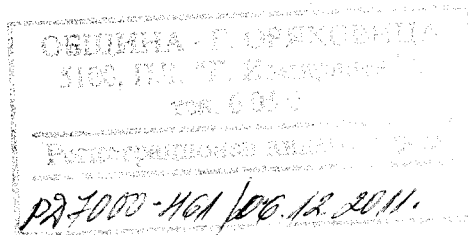 ОБЩИНА - Г. ОРЯХОВИЦА
5100, П.К. "Г. Измирлиев"
тел. 0
Регистрационен индекс
РД7000-461/06.12.2011.